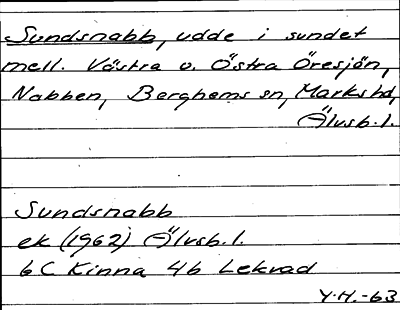 Sundsnabb, udde i sundet
mell. Västra o. Östra Öresjön,
Nabben, Berghems sn, Marks hd,
Älvsb.l.
Sundsnabb
ek (1962) Älvsb.l.
6C Kinna 4b Lekvad
Y.H.-63